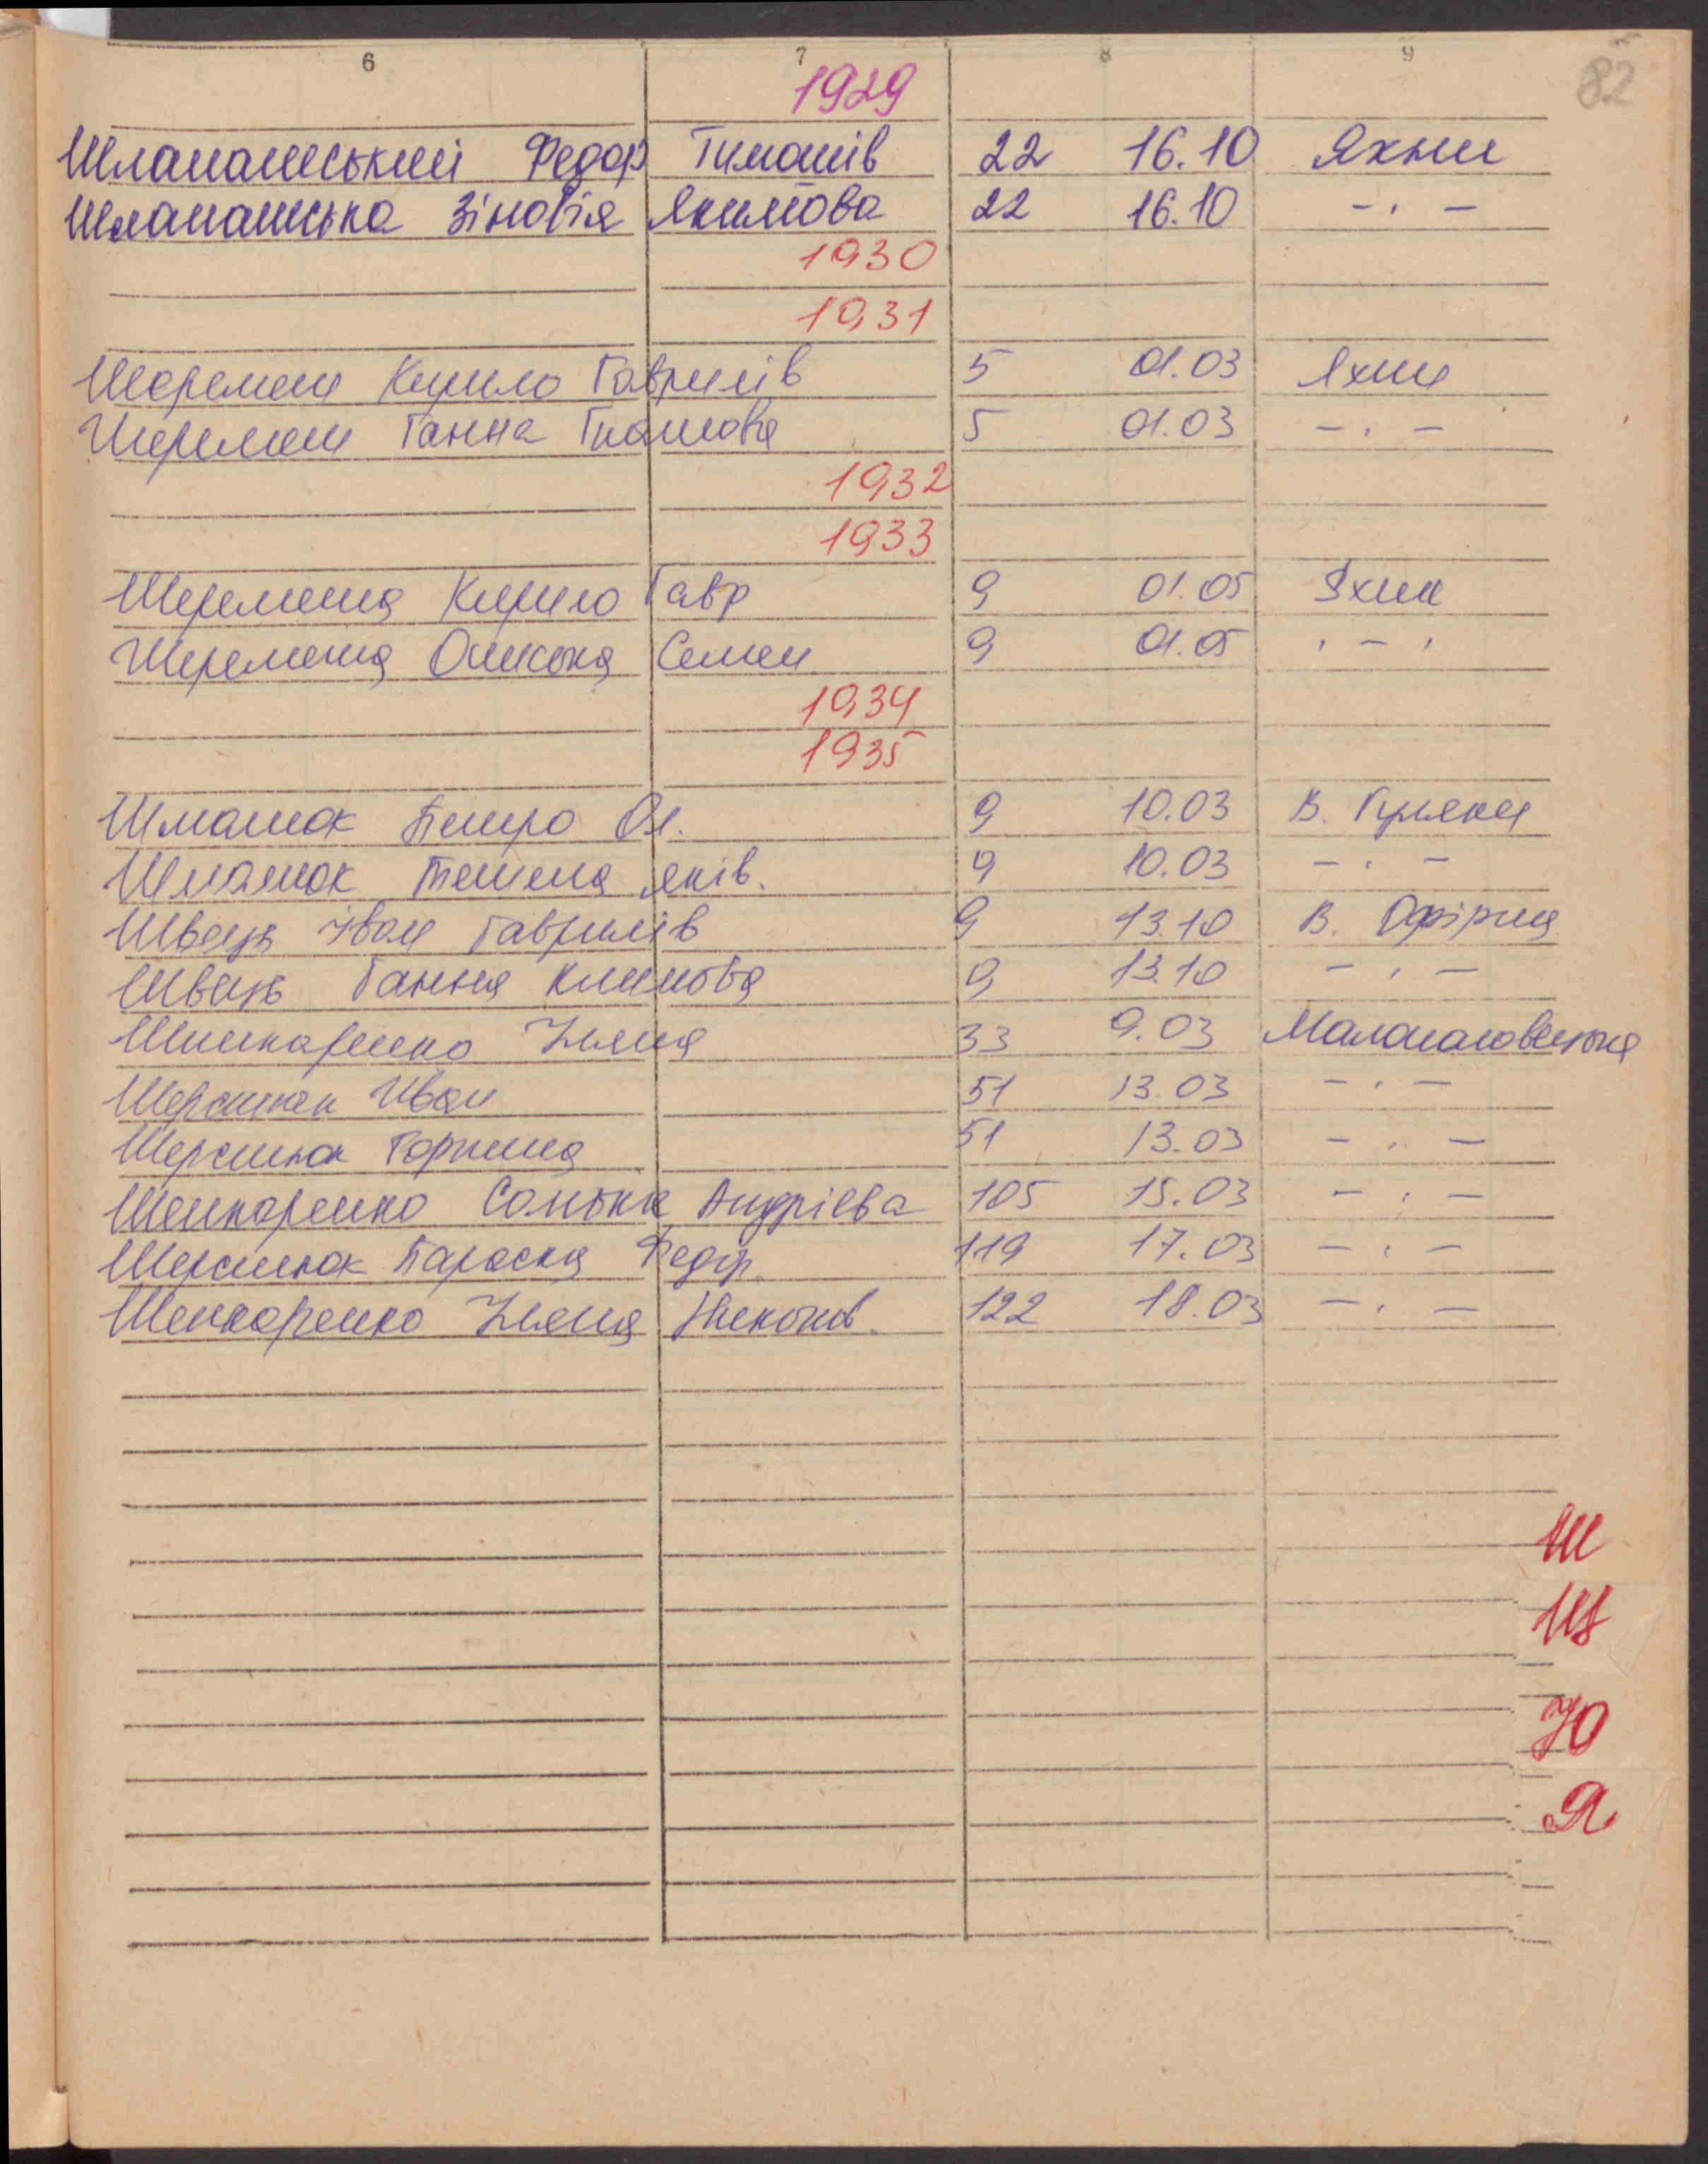 6 7 8 9 82
1929
Шлапанський Федор Тимошів 22 16.10 Яхни
Шлапанська Зіновія Якимова 22 16.10 - . -
1930
1931
Шеремет Кирило Гаврилів 5 01.03 Яхни
Шеремет Ганна 5 01.03 - . -
1932
1933
Шеремета Кирило Гавр 9 01.05 Яхни
Шеремета Семен 9 01.05 . - .
1934
1935
Шматок Петро Ол. 9 10.03 В. Гуляки
Шматок Тетяна яків. 9 10.03 - . -
Швець Іван Гаврилів 9 13.10 В. Офірна
Швець Ганна Климова 9 13.10 - . -
Шинкаренко Уляна 33 9.03
Шерстюк Иван 51 13.03 - . -
Шерстюк Горпина 51 13.03 - . -
Шинкаренко Сонька Андріева 105 15.03 - . -
Шерстюк Параска Федір. 119 17.03 - . -
Шинкаренко Уляна Никонов. 122 18.03 - . -
Ш
Щ
Ю
Я